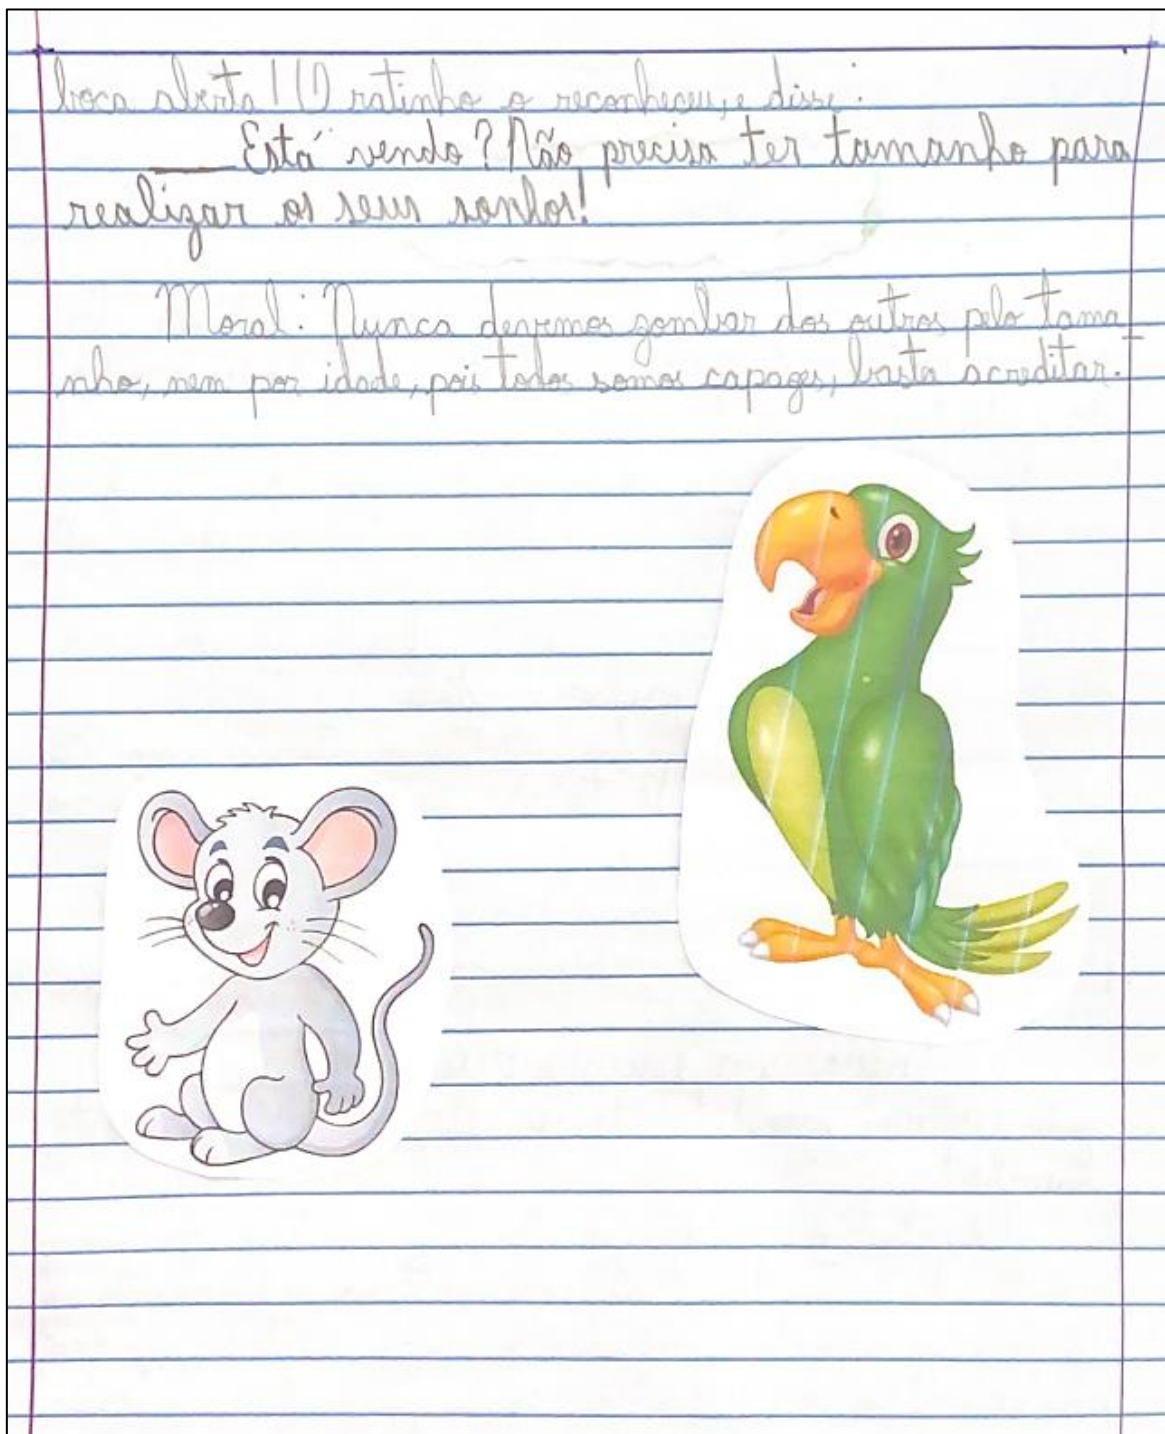 boca aberta! O ratinho o reconheceu, e disse:
___Está vendo? Não precisa ter tamanho para
realizar os seus sonhos!
Moral: Nunca devemos zombar dos outros pelo tama-
nho, nem por idade, pois todos somos capazes, basta acreditar.